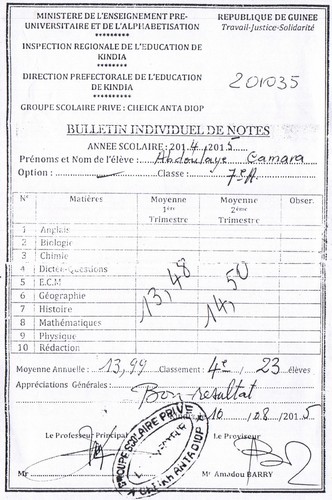 MINISTERE DE L'ENSEIGNEMENT PRE-
UNIVERSITAIRE ET DE L'ALPHABETISATION
*********
INSPECTION REGIONALE DE L'EDUCATION DE
KINDIA
*********
DIRECTION PREFECTORALE DE L'EDUCATION
DE KINDIA
*********
GROUPE SCOLAIRE PRIVE : CHEICK ANTA DIOP
REPUBLIQUE DE GUINEE
Travail-Justice-Solidarité
201035
BULLETIN INDIVIDUEL DE NOTES
ANNEE SCOLAIRE : 201.4./201.5
Prénoms et Nom de l'élève : Abdoulaye Camara
Option : Classe : 7e A
N° Matières Moyenne 1ère Trimestre Moyenne 2ème Trimestre Obser.
1 Anglais
2 Biologie
3 Chimie
4 Dictée-Questions
5 E.C.M
6 Géographie
7 Histoire
8 Mathématiques
9 Physique
10 Rédaction
13,48 14,50
Moyenne Annuelle : 13,99 Classement : 4e / 23 élèves
Appréciations Générales : Bon résultat
10 / 08 / 2015
Le Professeur Principal
Le Proviseur
GROUPE SCOLAIRE PRIVE
CHEIKH ANTA DIOP
Mr
Mr Amadou BARRY